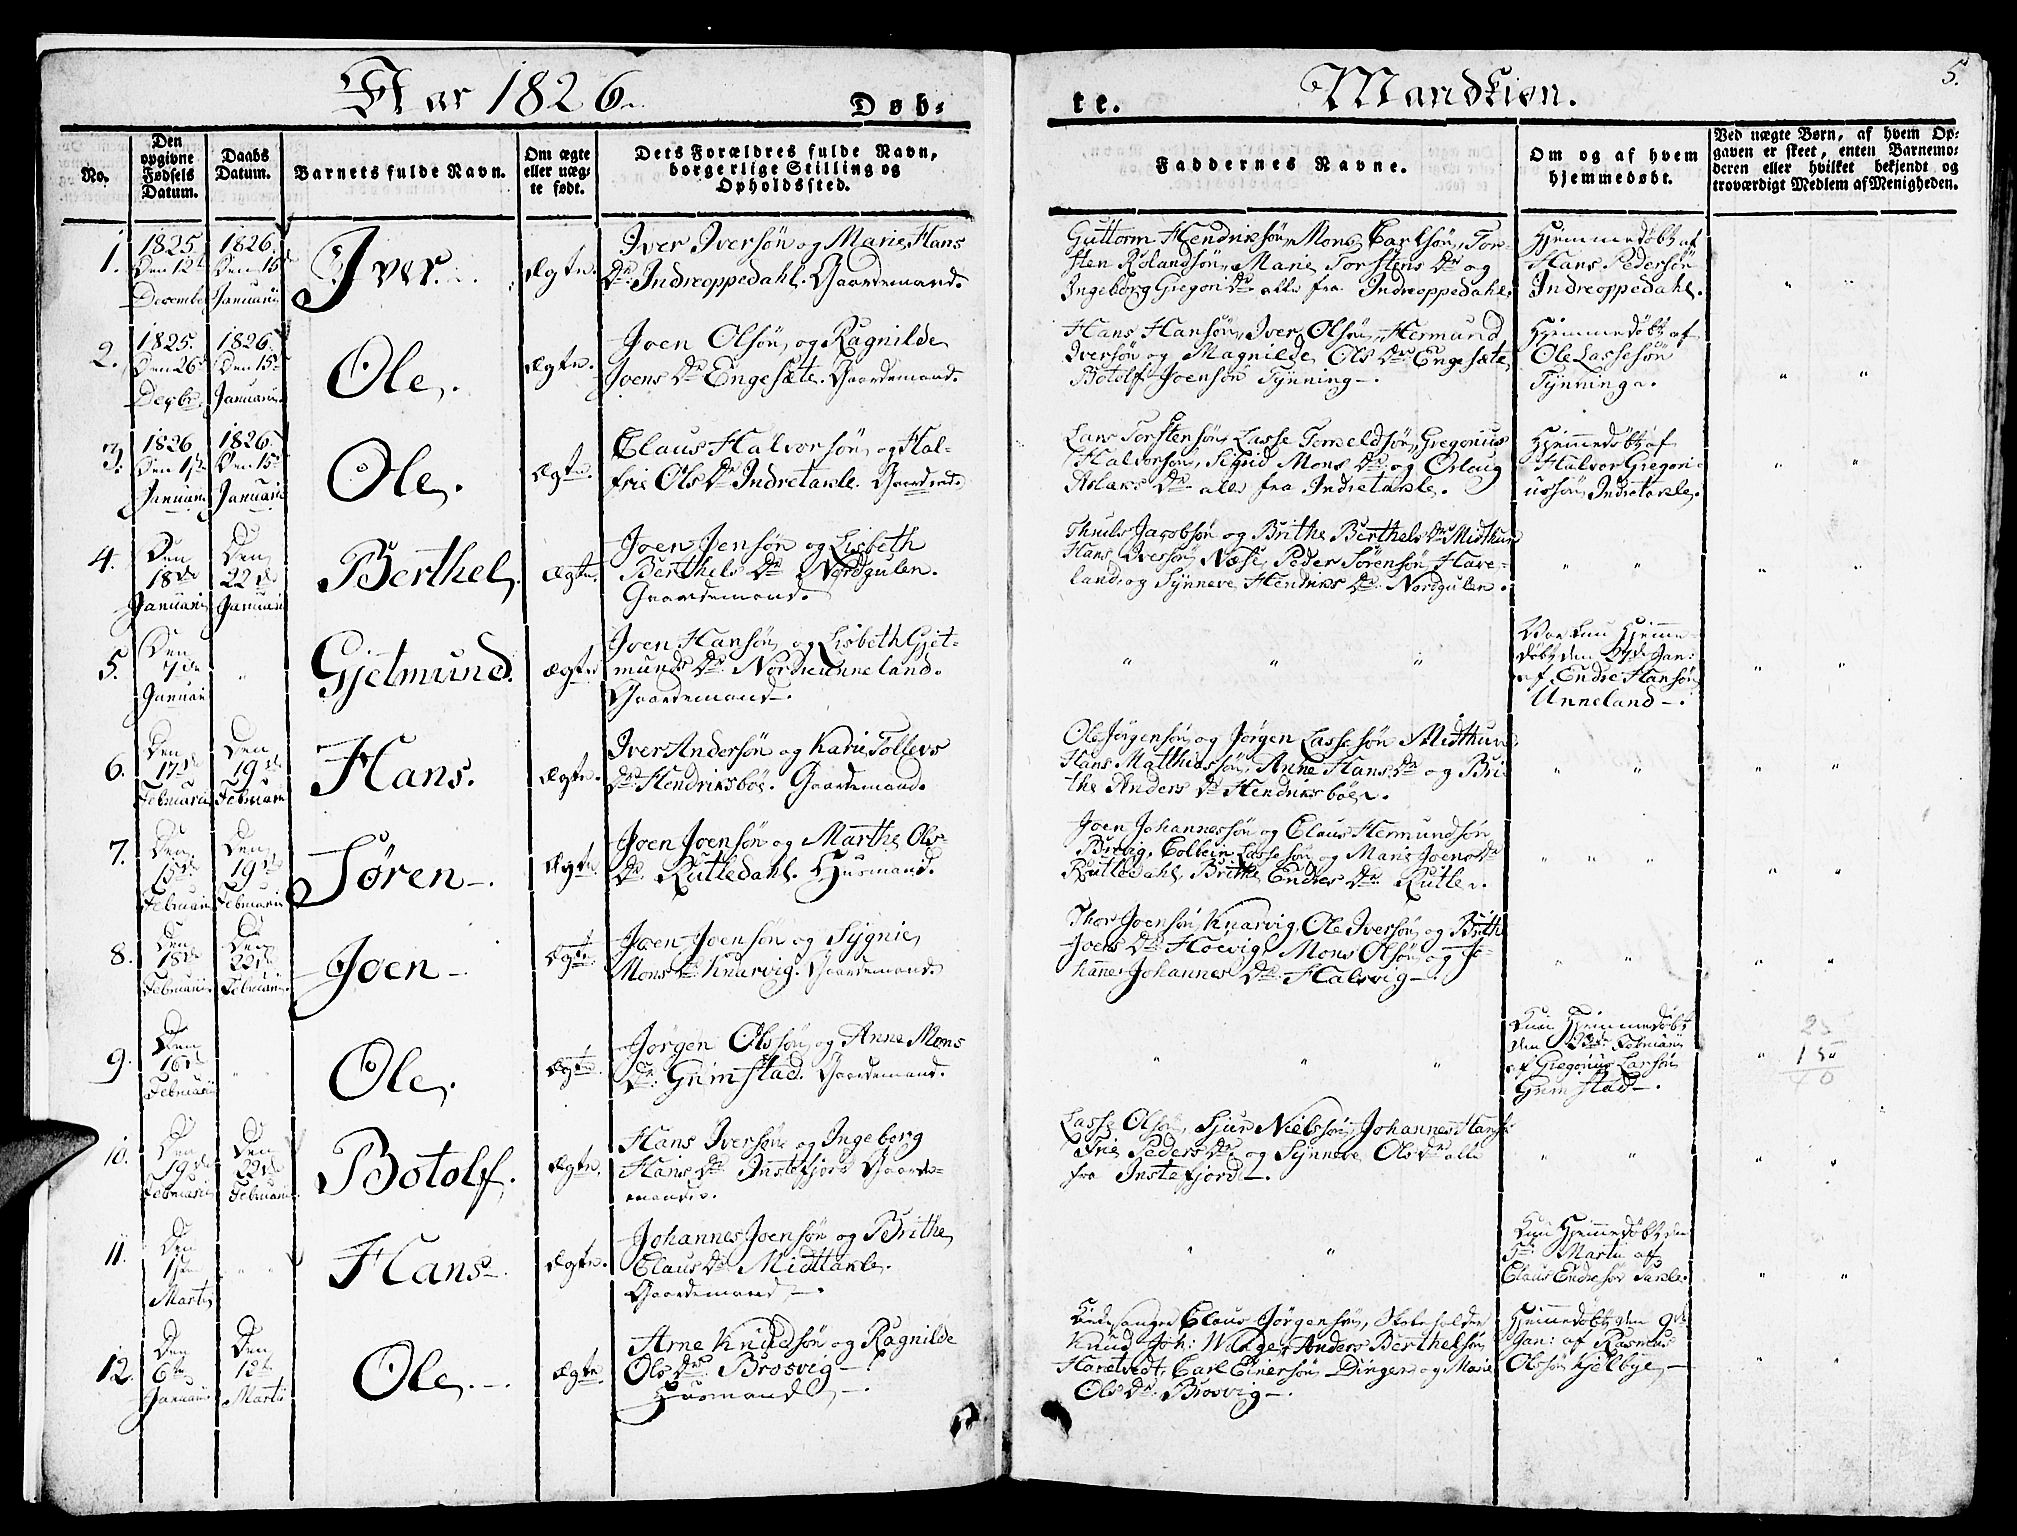 Aar 1826.
Døb=
te.
Mandkiøn.
5.
No.
Den opgivne Fødsels Datum.
Daabs Datum.
Barnets fulde Navn.
Om ægte eller uægte født.
Dets Forældres fulde Navn, borgerlige Stilling og Opholdssted.
Faddernes Navne.
Om og af hvem hjemmedøbt.
Ved uægte Børn, af hvem Opgaven er skeet, enten Barnemoderen eller hvilket bekjendt og troværdigt Medlem af Menigheden.
1.
1825
Den 12te
December
1826.
Den 15de
Januarii
Iver.
Ægte.
Iver Iversøn og Marie Hans
Dr. Indreoppedahl. Gaardemand.
Guttorm Hendriksøn, Mons Carlsøn, Tor-
sten Rolandsøn, Marie Torstens Dr og
Ingeborg Gregori Dr alle fra Indreoppedahl
Hjemmedøbt af
Hans Pedersøn
Indreoppedahl.
2.
1825.
Den 26de
Decbr.
1826.
Den 15de
Januarii
Ole.
Ægte.
Joen Olsøn og Ragnilde
Joens Dr Engesæte. Gaardemand.
Hans Hansøn, Iver Olsøn, Hermund
Iversøn og Magnilde Ols Dr Engesæte,
Botolf Joensøn Tynning.
Hjemmedøbt af
Ole Lassesøn
Tynning.
3.
1826
Den 1ste
Januarii
1826.
Den 15de
Januarii
Ole.
Ægte.
Claus Halvorsøn og Hal-
frie Ols Dr Indretakle. Gaardmd.
Lars Torstensøn, Lasse Gregorius
Halvorsøn, Sigrid Mons Dr og Orlaug
Dr alle fra Indretakle.
Hjemmedøbt af
Halvor Gregori-
ussøn Indretakle.
4.
Den
18de
Januarii
Den
22de
Januarii
Berthel.
Ægte.
Joen Jensøn og Lisbeth
Berthels Dr Nordgulen.
Gaardemand.
Thruls Jacobsøn og Brithe Berthels Dr Midthun
Hans Iversøn Næse, Peder Sørensøn Have-
land, og Synneve Hendriks Dr Nordgulen.
5.
Den
7de
Januari
Gjelmund.
Ægte
Joen Hansøn og Lisbeth Gjel-
munds Dr Nordreunneland.
Gaardemand.
Var kun Hjemme-
døbt den 27de Jan:
af Endre Hansøn
Unneland.
6.
Den
17de
Februarii
Den
19de
Februarii
Hans.
Ægte.
Iver Andersøn og Karie Tollevs
Dr Hendriksbøe. Gaardemand.
Ole Jørgensøn og Jørgen Lassesøn Midthun
Hans Matthiassøn, Anne Hans Dr og Bri
the Anders Dr Hendriksbøe.
7.
Den
15de
Februarii
Den
19de
Februarii
Søren.
Ægte.
Joen Joensøn og Marthe Ols
Dr Rutledahl. Husmand.
Joen Johannessøn og Claus Hermundsøn
Colbein Lassesøn og Marie Joens Dr
Rutledahl, Brithe Endres Dr Rutle.
8.
Den
18de
Februarii
Den
22de
Februarii
Joen
Ægte.
Joen Joensøn og Sygnie
Mons Dr Knarvig. Gaardemand.
Thor Joensøn Knarvig, Ole Iversøn og Brith
Joens Dr Hoevig, Mons Olsøn og Jo-
hanne Johannes Dr Halsvig.
9.
Den
16de
Februarii
Ole.
Ægte.
Jørgen Olssøn og Anne Mons
Dr. Grimstad. Gaardemand.
Kun Hjemmedøbt
den 23de Februarii
af Gregorius Larsøn
Grimstad.
10.
Den
19de
Februarii
Den
22de
Februarii
Botolf.
Ægte.
Hans Iversøn og Ingeborg
Hans Dr Instefjord. Gaarde-
mand.
Lasse Olsøn, Sjur Nielssøn, Johannes Hans
Peders Dr og Synneve Ols Dr alle
fra Instefjord.
11.
Den
1ste
Martii
Hans.
Ægte.
Johannes Joensøn og Brithe
Claus Dr Midttakle.
Gaardemand.
Kun Hjemmedøbt den
5te Martii af
Claus Endresøn Takle.
12.
Den
6te
Januarii
Den
12te
Martii
Ole.
Ægte.
Arne Knudsøn og Ragnilde
Ols Dr. Brosvig
Husmand.
Claus Jørgensøn, Skoleholder
Knud Joh: Anders Berthelsøn
Carl Einersøn Dingen og Marie
Ols Dr Brosvig.
Hjemmedøbt den 9de
Jan: af Rasmus
Olsøn Kjelbye.